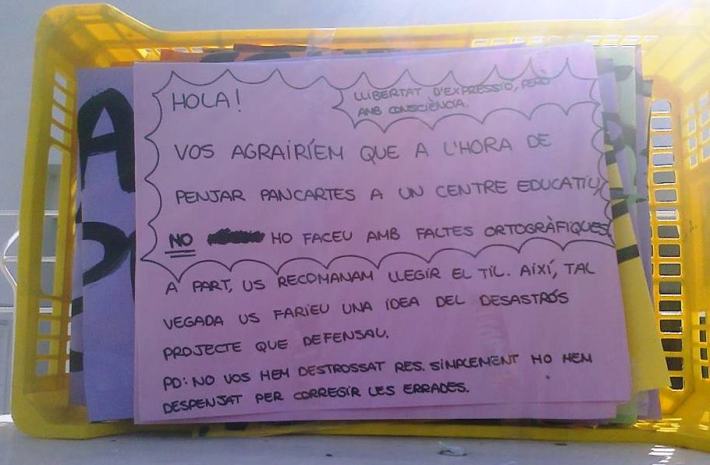 HOLA!
LLIBERTAT D'EXPRESSIÓ, PERÒ
AMB CONSCIÈNCIA.
VOS AGRAIRÍEM QUE A L'HORA DE
PENJAR PANCARTES A UN CENTRE EDUCATIU
NO HO FACEU AMB FALTES ORTOGRÀFIQUES.
A PART, US RECOMANAM LLEGIR EL TIL. AIXÍ, TAL
VEGADA US FARIEU UNA IDEA DEL DESASTRÓS
PROJECTE QUE DEFENSAU.
PD: NO VOS HEM DESTROSSAT RES. SIMPLEMENT HO HEM
DESPENJAT PER CORREGIR LES ERRADES.